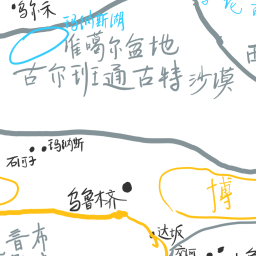 乌尔禾
玛纳斯湖
准噶尔盆地
古尔班通古特沙漠
玛纳斯
石河子
乌鲁木齐
博
达坂